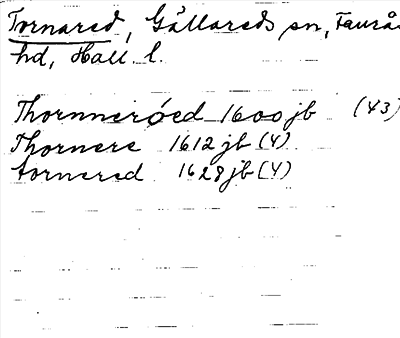 Tornared, Gällareds sn, Faurås
hd, Hall. l.
Thornnerøed 1600 jb (43)
Thornere 1612 jb (4)
tornered 1628 jb (4)